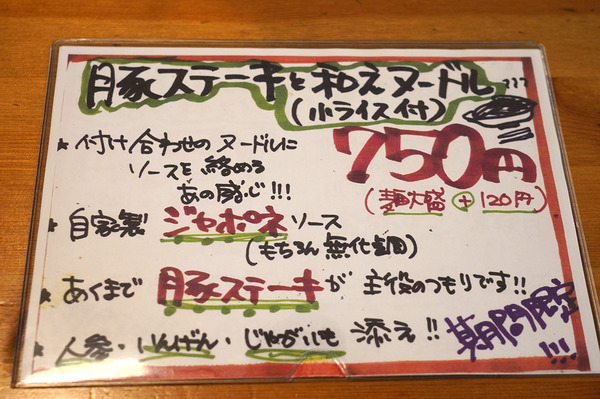 豚ステーキと和えヌードル...???
(小ライス付)
750円
(麺大盛 + 120円)
* 付け合わせのヌードルに
ソースを絡める
あの感じ!!!
* 自家製 ジャポネソース
(もちろん無化調)
* あくまで 豚ステーキが 主役のつもりです!!
* 人参・いんげん・じゃがいも 添え!!
期間限定!!!